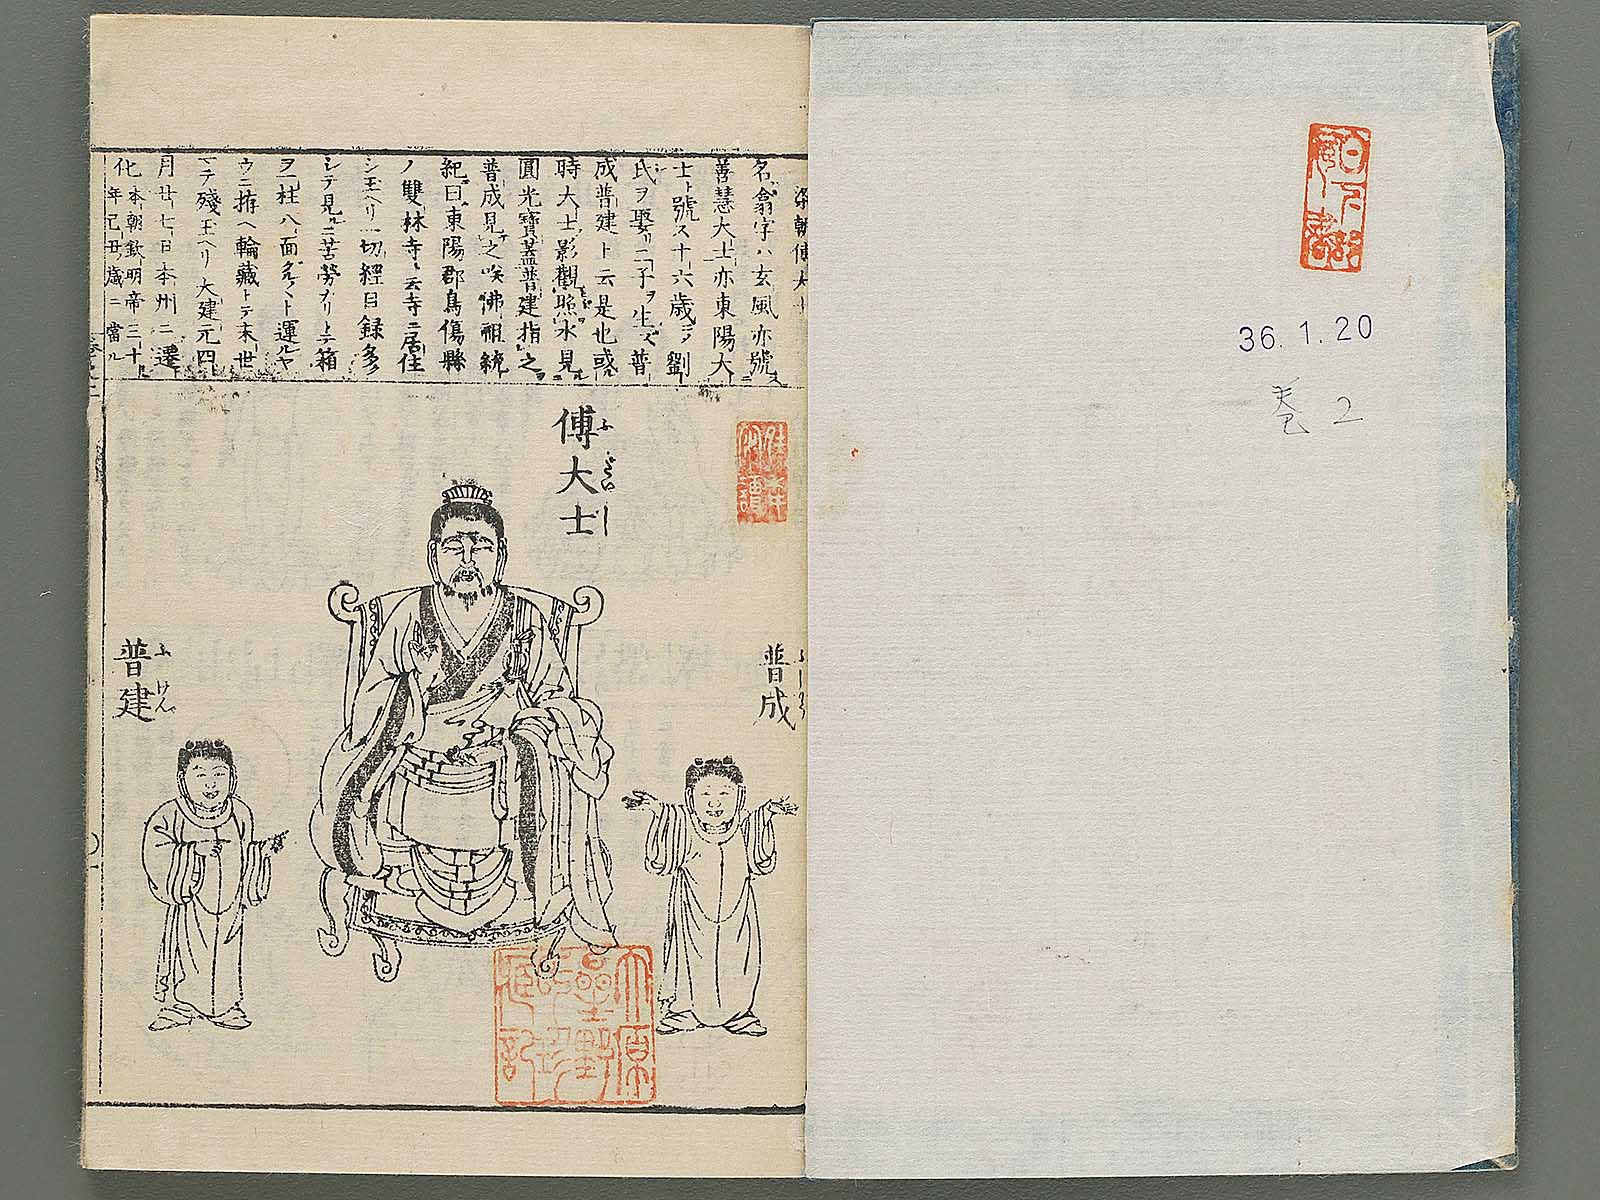 36.1.20
巻2
梁朝傅大士
名翕字ハ玄風亦號ス
善慧大士亦東陽大
士ト號ス十六歳ニシテ劉
氏ヲ娶リ二子ヲ生ズ普
成普建ト云是也或ル
時大士影觀照水見ル
圓光寶蓋普建指之ヲ
普成見之咲佛祖統
紀曰東陽郡烏傷縣
ノ雙林寺ト云寺ニ居住
シ玉ヘリ一切經目録多ク
シテ見ルニ苦勞ナリトテ箱
ヲ一柱八面
ト運ルヤ
ウニ拵ヘ輪藏トテ末世
ニテ殘玉ヘリ大建元四
月廿七日本州ニ遷
化本朝欽明帝三十
年己丑ノ歳ニ當ル
傅大士
ふだいし
普成
ふじやう
普建
ふけん